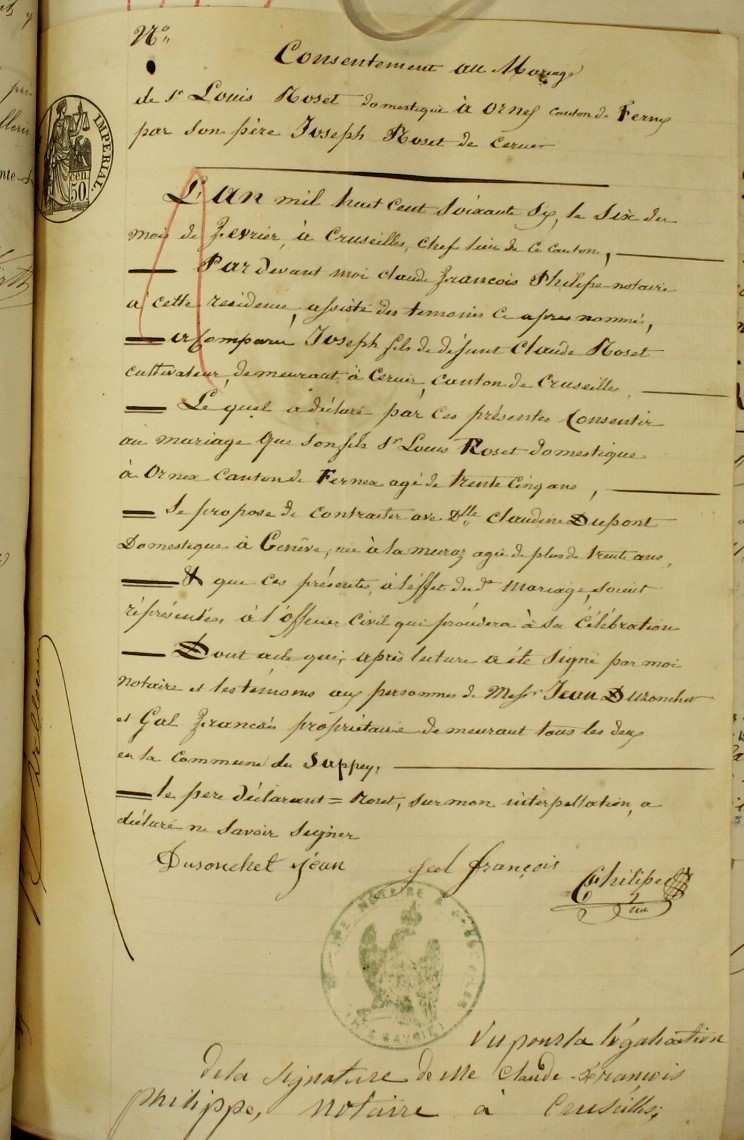 N°
Consentement au Mariage
de Sr Louis Roset domestique à Ornex canton de Ferney
par son père Joseph Roset de Cernex
IMPERIAL.
50.
L'an mil huit cent soixante six, le six du
mois de Février, à Cruseilles, chef lieu de ce canton,
Par devant moi Claude François Philipe notaire
a cette residence, assisté des temoins ci apres nommés,
a Comparu Joseph fils de défunt Claude Roset
cultivateur, demeurant à Cernex, canton de Cruseilles,
Le quel a déclaré par ces présentes Consentir
au mariage que son fils Sr Louis Roset domestique
à Ornex canton de Fernex agé de trente cinq ans,
se propose de contracter avec Dlle Claudine Dupont
Domestique à Genève, née à la muraz agée de plus de trente ans,
& que ces présentes, à l'effet dudt Mariage, soient
réprésentées à l'officier civil qui procédera à sa célébration
Dont acte qui, après lecture a été signé par moi
notaire et les témoins aux personnes de Messrs Jean Dusonchet
et Gal François propriétaires demeurant tous les deux
en la commune du Sappey,
le pere déclarant = Roset, sur mon interpellation, a
déclaré ne savoir signer
Dusonchet jean
gal françois
Philipe
NOTAIRE A CRUSEILLES
Vu pour la légalisation
de la signature de Me Claude-François
Philippe, notaire à Cruseilles;